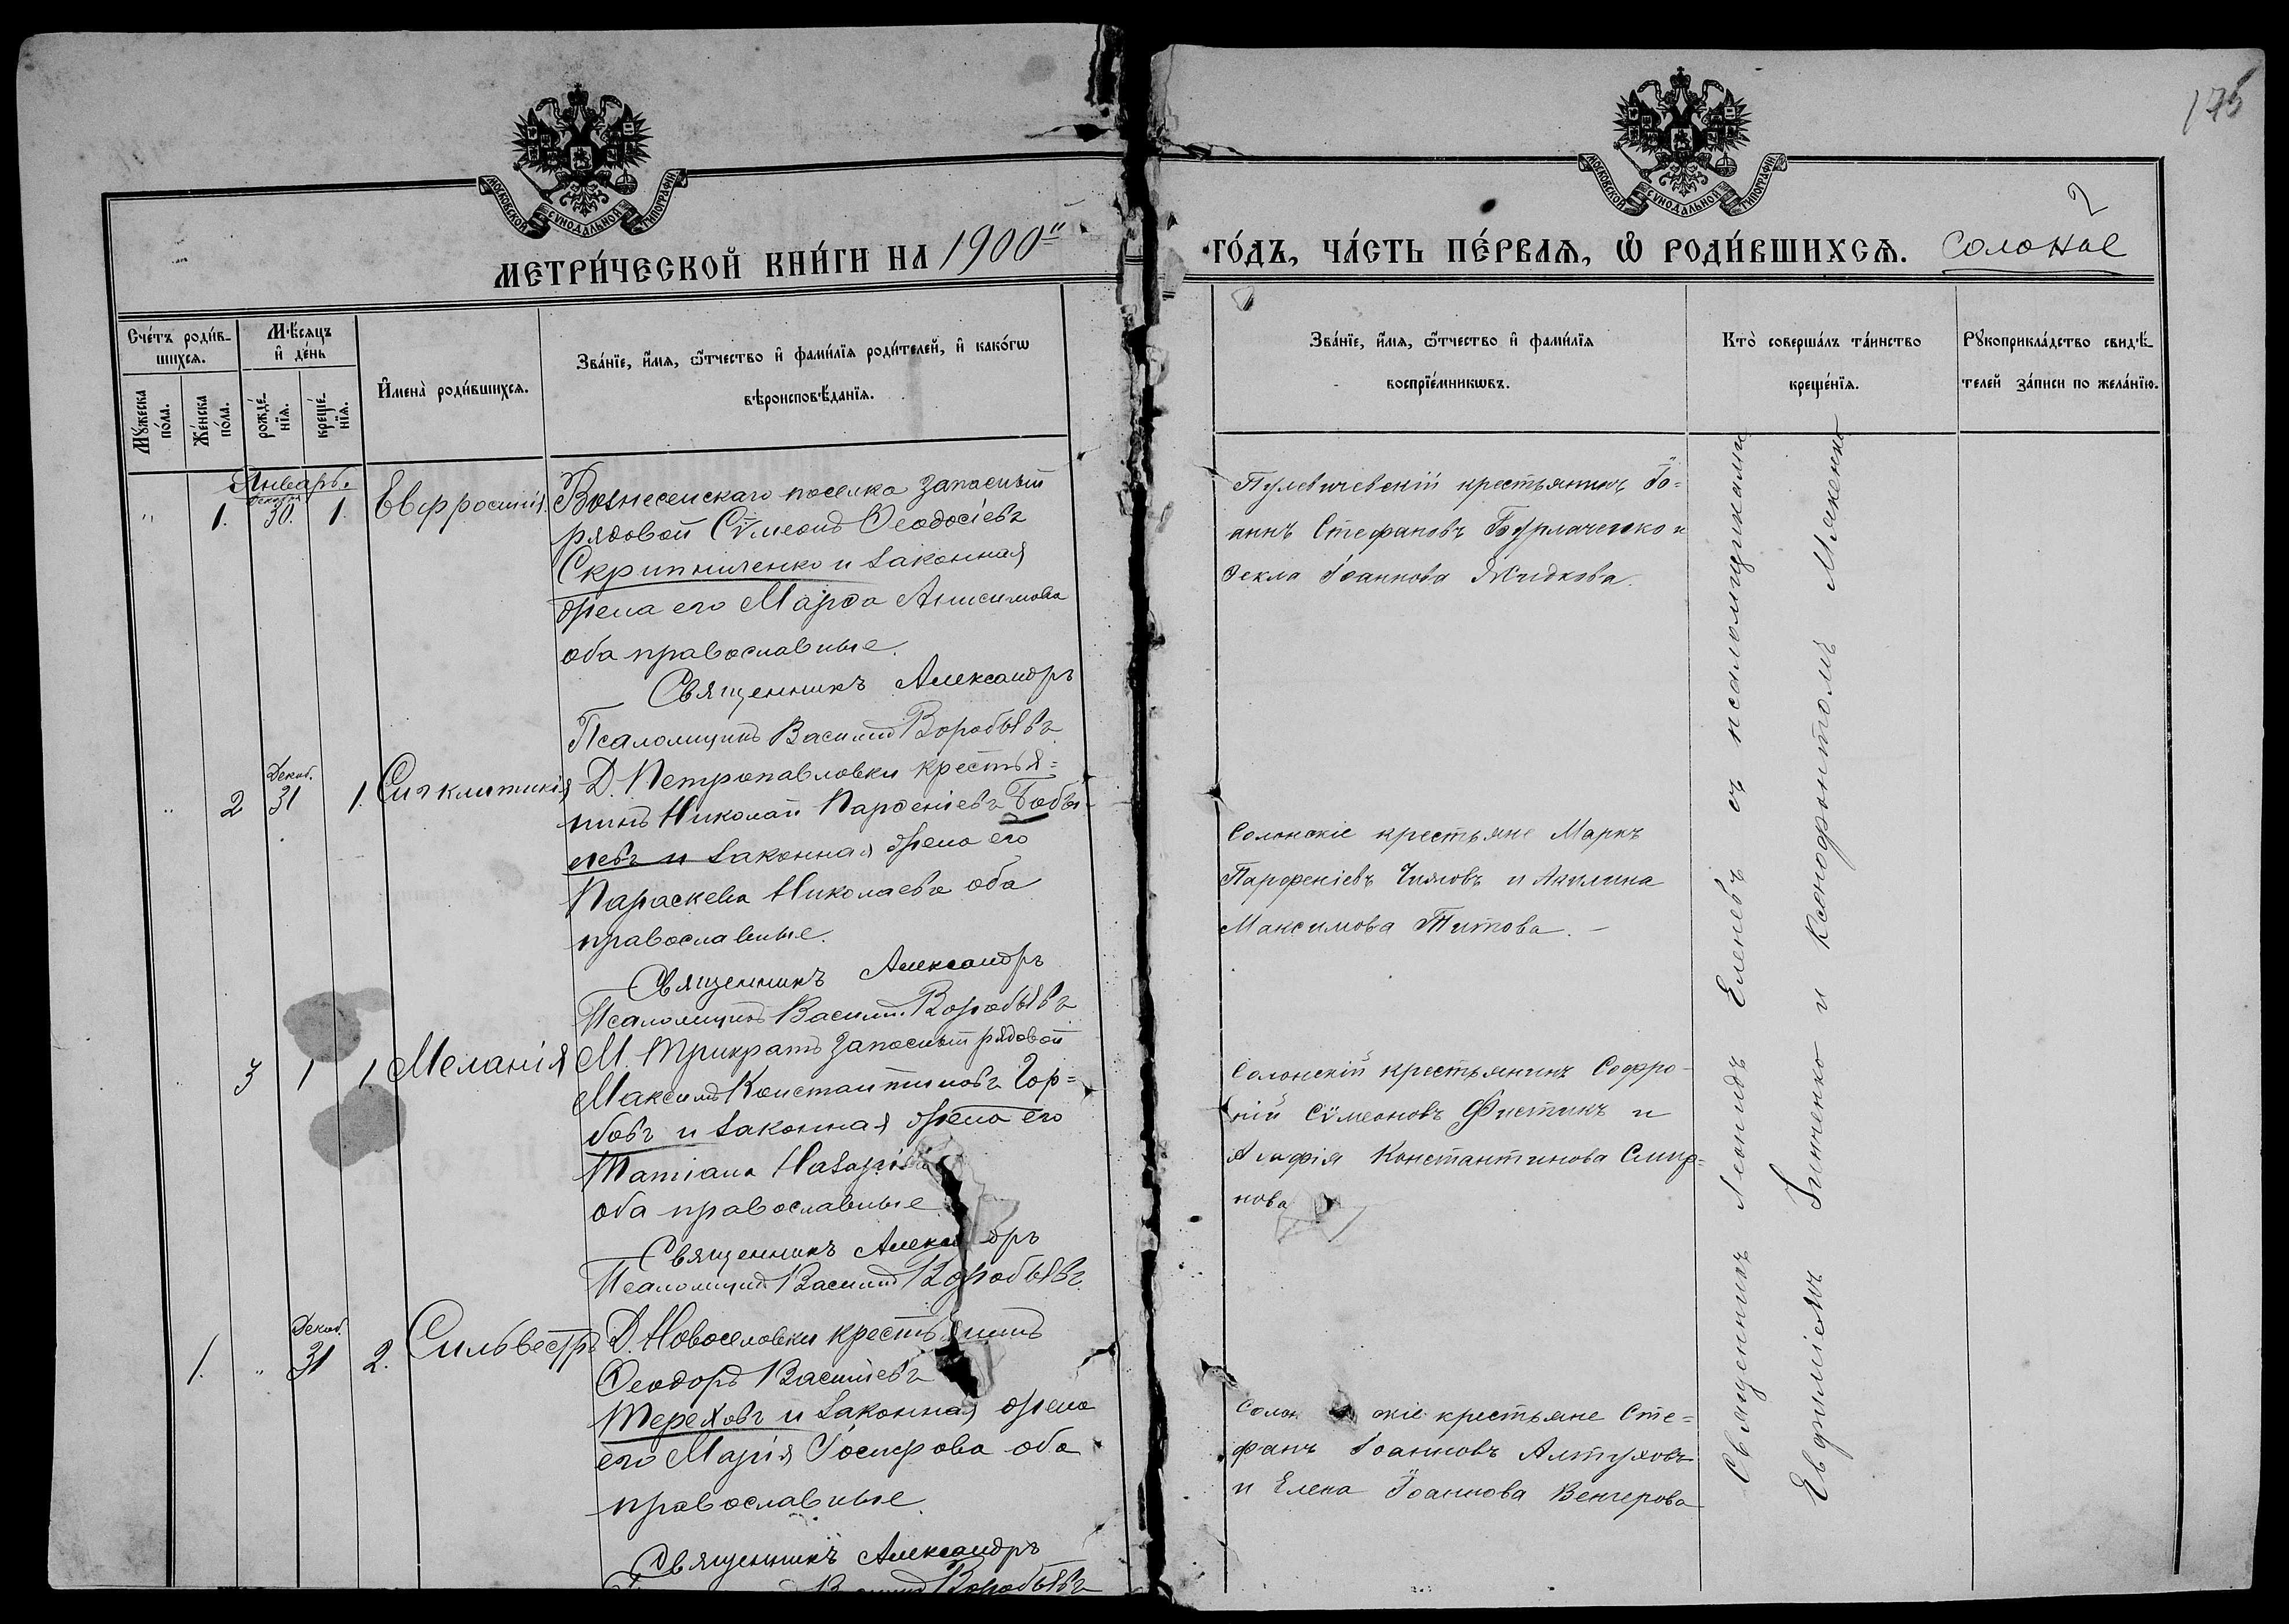 175
2
МОСКОВСКОЙ СУНОДАЛЬНОЙ ТИПОГРАФІИ
МОСКОВСКОЙ СУНОДАЛЬНОЙ ТИПОГРАФІИ
МЕТРИ́ЧЕСКОЙ КНИ́ГИ НА 1900й
ГО́ДЪ, ЧА́СТЬ ПЕ́РВАѦ, Ѡ РОДИ́ВШИХСѦ. Солоное
Сче́тъ роди́в-
шихсѧ.
Мꙋ́жеска по́ла.
Же́нска по́ла.
М́ѣсѧцъ
и де́нь
рожде́-
нїѧ.
креще́-
нїѧ.
Имена̀ роди́вшихсѧ.
Зва́нїе, и́мѧ, ѻ́тчество и фами́лїѧ роди́телей, и како́гѡ
вѣроисповѣ́данїѧ.
Зва́нїе, и́мѧ, ѻ́тчество и фами́лїѧ
воспрїе́мникѡвъ.
Кто̀ соверша́лъ та́инство
креще́нїѧ.
Рꙋкоприкла́дство свидѣ́-
телей за́писи по жела́нїю.
Январь.
" 1. Декабря 30. 1. Евфросинія
Вознесенскаго поселка запасный
рядовой Сѵмеонъ Ѳеодосіевъ
Скрипниченко и законная
жена его Марѳа Анисимова
оба православные.
Священникъ Александръ
Псаломщикъ Василій Воробьевъ
Пулевичевскій крестьянинъ Іо=
аннъ Стефановъ Бурлаченко и
Ѳекла Іоаннова Жидкова.
" 2 Декаб. 31 1. Синклитикія
Д. Петропавловки крестья=
нинъ Николай Парѳеніевъ Бобы-
левъ и законная жена его
Параскева Николаева оба
православные.
Священникъ Александръ
Псаломщикъ Василій Воробьевъ
Солонскіе крестьяне Маркъ
Парфеніевъ и Акилина
Максимова Титова. –
" 3 1 1 Меланія
М. Трикратъ запасный рядовой
Максимъ Константиновъ Гор=
бовъ и законная жена его
Татіана Назарі
оба православные
Священникъ Александръ
Псаломщикъ Василій Воробьевъ
Солонскій крестьянинъ Софро-
ній Сѵмеоновъ Фистикъ и
Агафія Константинова Смир=
нова
1. " Декаб. 31 2. Сильвестръ
Д. Новоселовки крестьянинъ
Ѳеодоръ Василіевъ
Тереховъ и законная жена
его Марія Іосифова оба
православные
Священникъ Александръ
Василій Воробьевъ
Солонскіе крестьяне Сте=
фанъ Іоанновъ Алтуховъ
и Елена Іоаннова Венгерова
Священникъ Леонидъ Еленевъ съ псаломщиками
Евфиміемъ Зинченко и Ксенофонтомъ Мякенко